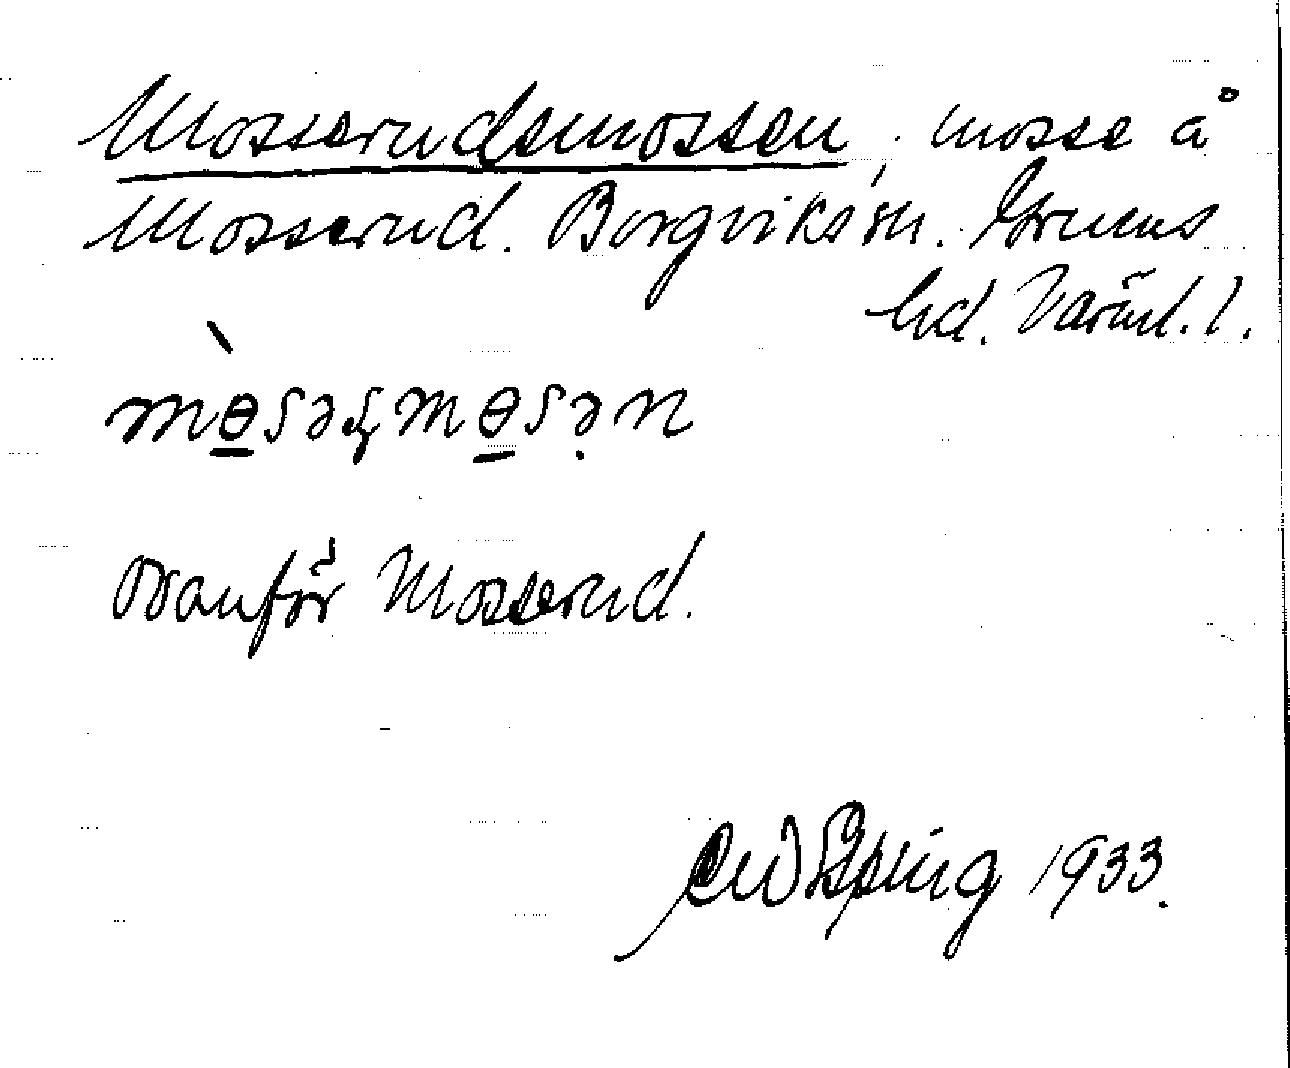 Mosserudsmossen, mosse å
Mosserud. Borgviks sn. Grums
hd. Värml. l.
mɵ̠̀səʂmɵ̠sə̣n
Ovanför Mosserud.
Esping 1933.